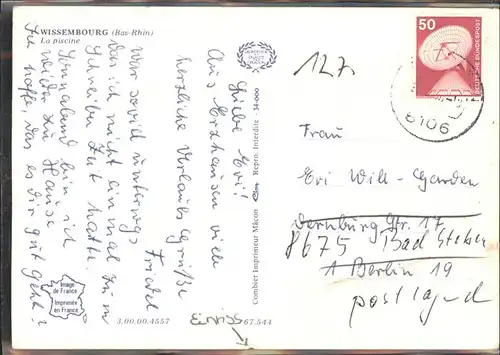 WISSEMBOURG (Bas-Rhin)
La piscine
Liebe Evi!
Aus Erxhausen viele
herzliche Urlaubsgrüße
Friedel
War soviel unterwegs
das ich nicht einmal zum
Schreiben Zeit hatte.
Sonnabend bin ich
wieder zu Hause
Ich hoffe, das es dir gut geht!
Image
de France
Imprimée
en France
3.00.00.4557
67.544
Combier Imprimeur Mâcon
Reprod. Interdite
34-000
50
DEUTSCHE BUNDESPOST
6106
127
Frau
Evi Will-Garden
Dernburg Str. 17
8675 Bad Steben
1 Berlin 19
postlagernd